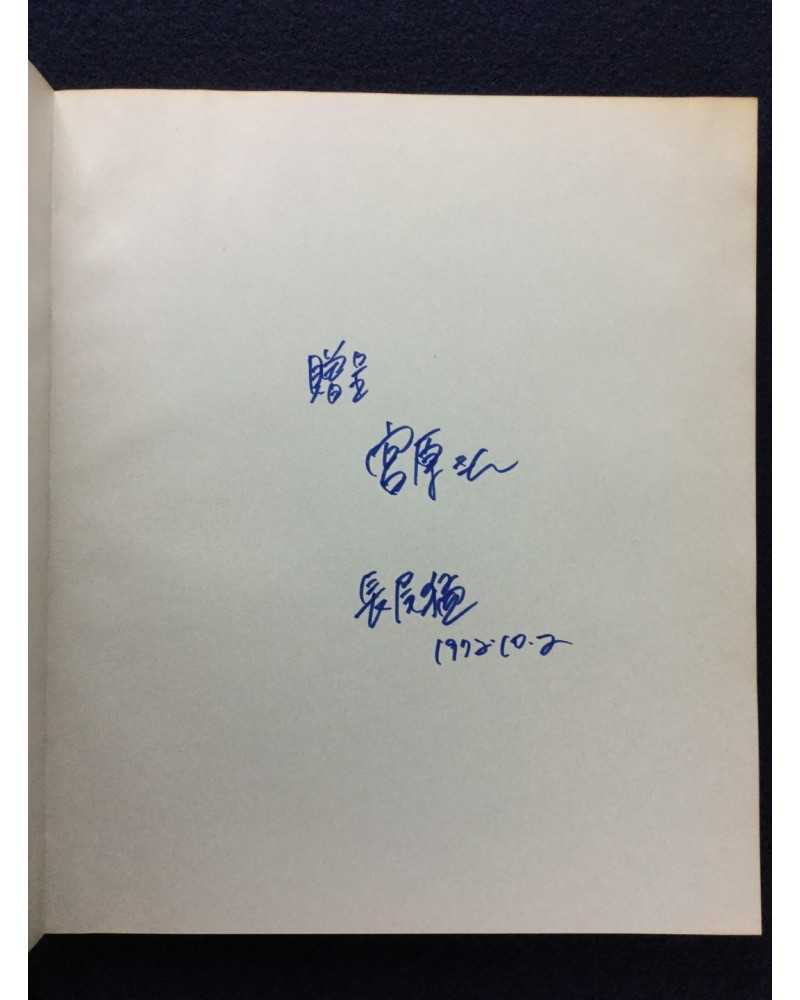 贈呈
宮原さん
長尾
1972.10.2